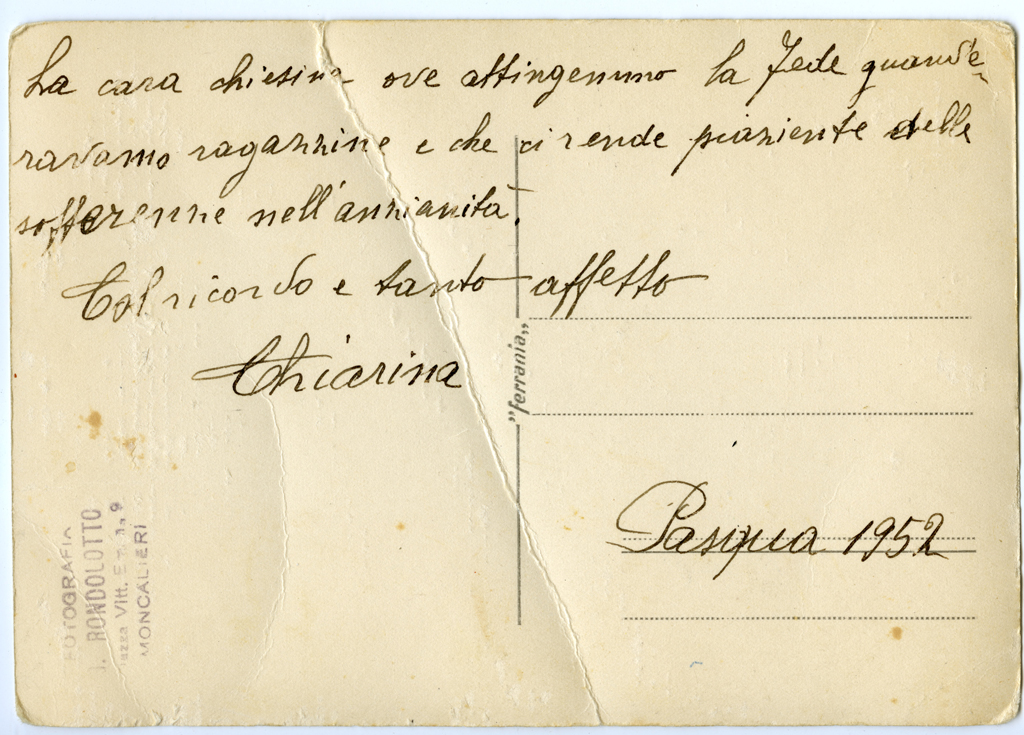 La cara chiesina ove attingemmo la Fede quand'e-
ravamo ragazzine e che ci rende paziente delle
sofferenze nell'anzianità.
Col ricordo e tanto affetto
Chiarina
"ferrania"
Pasqua 1952
FOTOGRAFIA
RONDOLOTTO
Vitt. 9
MONCALIERI